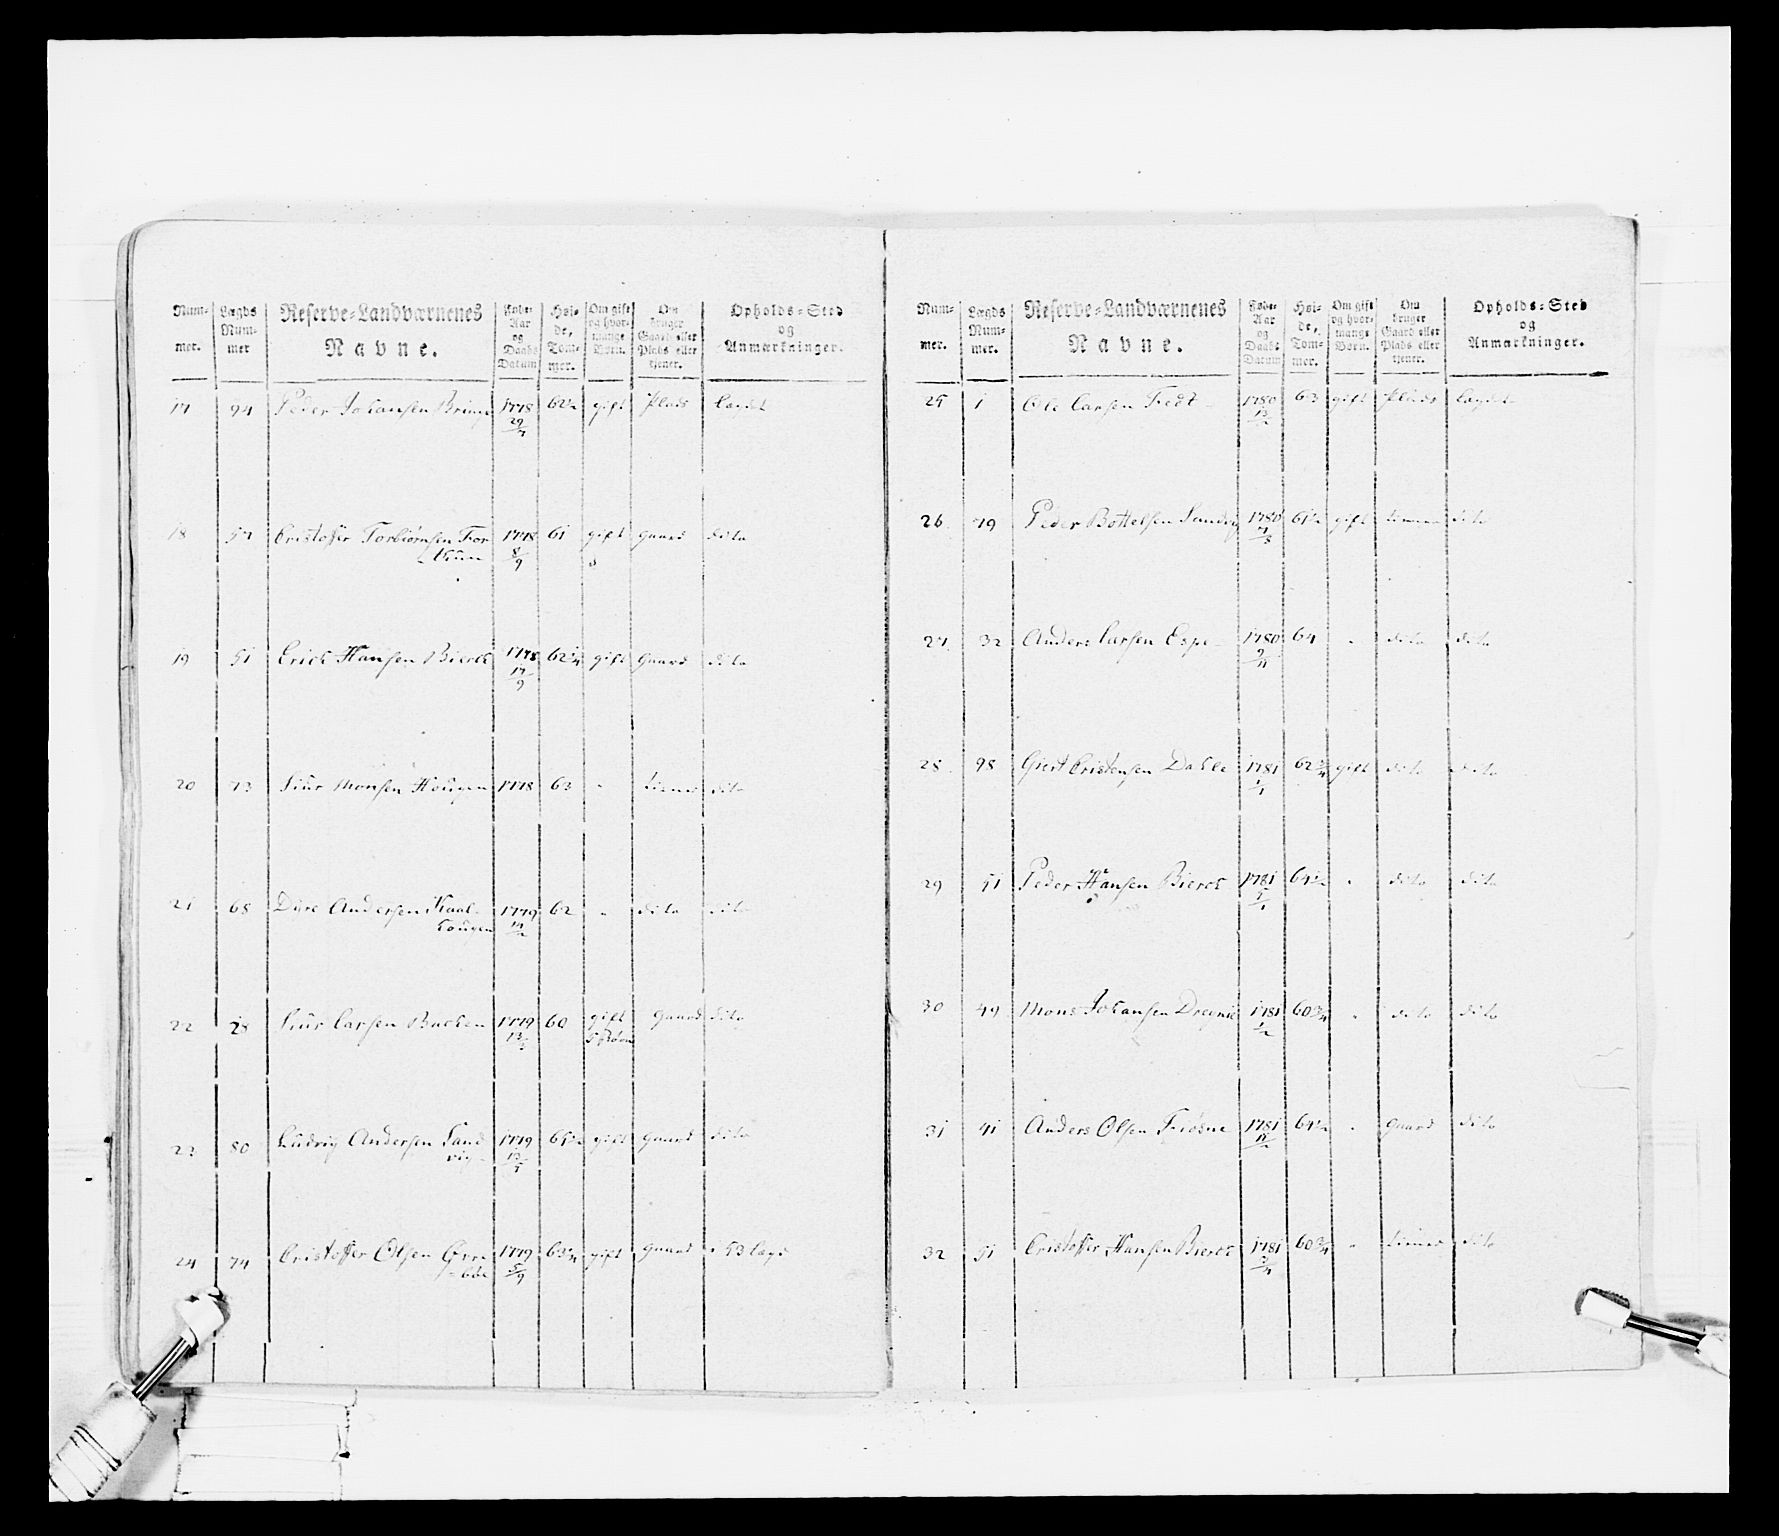 Num- mer. | Lægds Num- mer | Reserve-Landværnenes Navne. | Føde- Aar og Daabs Datum | Høi- de, Tom- mer. | Om gift og hvor- mange Børn. | Om bruger Gaard eller Plads eller tjener. | Opholds-Sted og Anmærkninger.
17 94 Peder Johansen 1778 62½ gift Plads lægdet
29/7
18 57 Cristoffer Torbiørnsen 1778 61 gift gaard dito
8/9
19 51 Erick Hansen Bierck 1778 62¼ gift gaard dito
17/9
20 73 Siur Monsen Hougen 1778 63 " dito
21 68 Dyre Andersen Kaal- 1779 62 " dito dito
hougen
22 28 Siur Larsen 1779 60 gift gaard dito
5 Børn
23 80 Ludvig Andersen Sand- 1779 gift gaard dito
vig
24 74 Cristoffer Olsen 1779 63¼ gift gaard i 53 lægd
5/9
Num- mer. | Lægds Num- mer. | Reserve-Landværnenes Navne. | Føde- Aar og Daabs Datum | Høi- de, Tom- mer. | Om gift og hvor- mange Børn. | Om bruger Gaard eller Plads eller tjener. | Opholds-Sted og Anmærkninger.
25 1 Ole Larsen 1780 63 gift Plads lægdet
26 79 Peder Bottelsen Sandvig 1780 61½ gift dito
27 32 Anders Larsen Espe 1780 64 " dito dito
9/11
28 98 Giert Cristensen Dahle 1781 62¾ gift dito dito
1/1
29 51 Peder Hansen Bierck 1781 64½ " dito dito
30 49 Mons Johansen 1781 60¾ " dito dito
1/2
31 41 Anders Olsen 1781 64½ " gaard dito
32 51 Cristoffer Hansen Bierck 1781 60¾ " dito